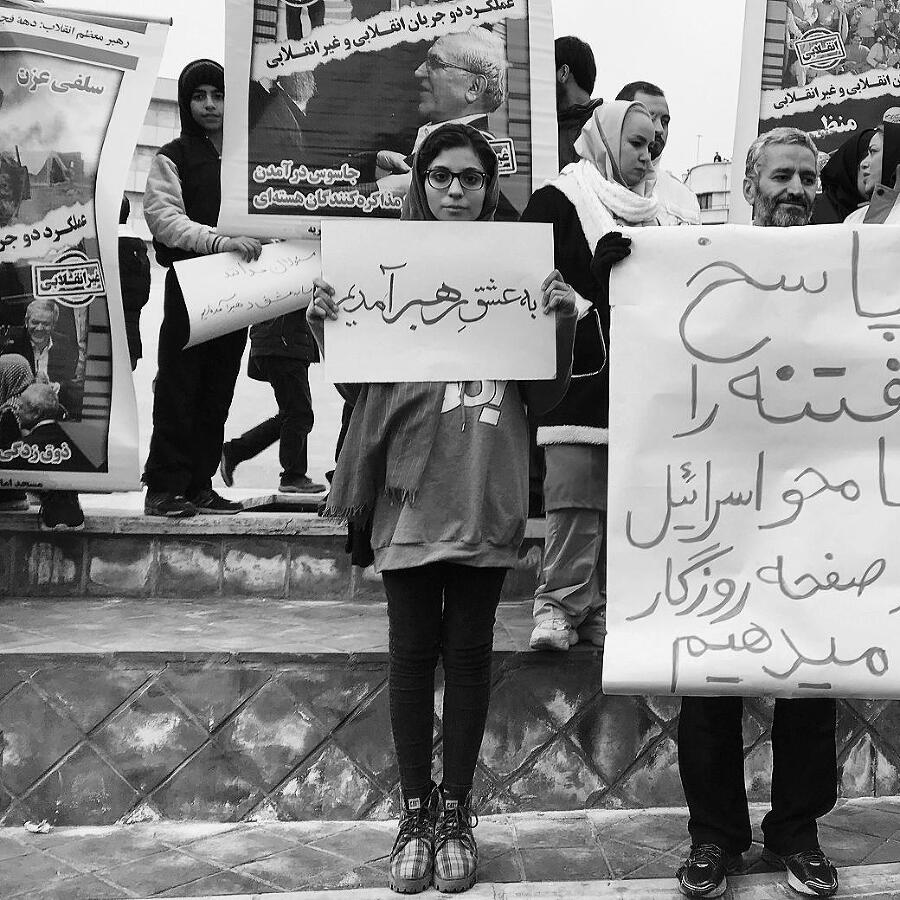 رهبر معظم انقلاب: دهه فجر
سلفی عزت
عملکرد دو جر
غیر انقلابی
ذوق زدگی
مسجد اما
عملکرد دو جریان انقلابی و غیر انقلابی
جاسوس در آمدن
مذاکره کنندگان هسته‌ای
مسئولان بدانند
ما به عشق رهبر آمده‌ایم
به عشق رهبر آمدیم
انقلابی
ان انقلابی و غیر انقلابی
پاسخ
فتنه را
با محو اسرائیل
از صفحه روزگار
میدهیم